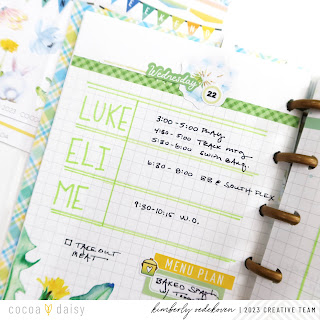 Wednesday
22
LUKE
3:00-5:00 PLAY
4:30-5:00 TRACK MTG
5:30-6:00 SWIM BANQ.
ELI
6:30-8:00 BB @ SOUTH FLEX
ME
9:30-10:15 W.O.
TAKE OUT
MEAT
MENU PLAN
BAKED
cocoa daisy
kimberly vedehoven | 2023 CREATIVE TEAM